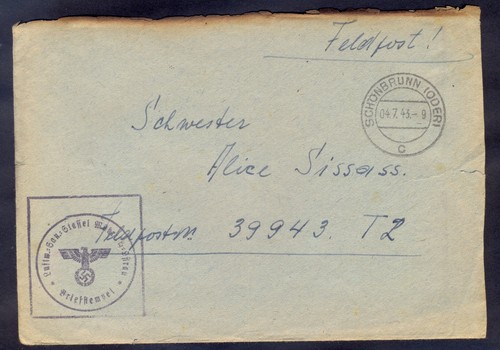 Feldpost!
SCHÖNBRUNN (ODER)
04.7.43.-9
c
Schwester
Alice Sissass.
Feldpostnr. 39943. T2
Luftw.-San.-Staffel
Briefstempel